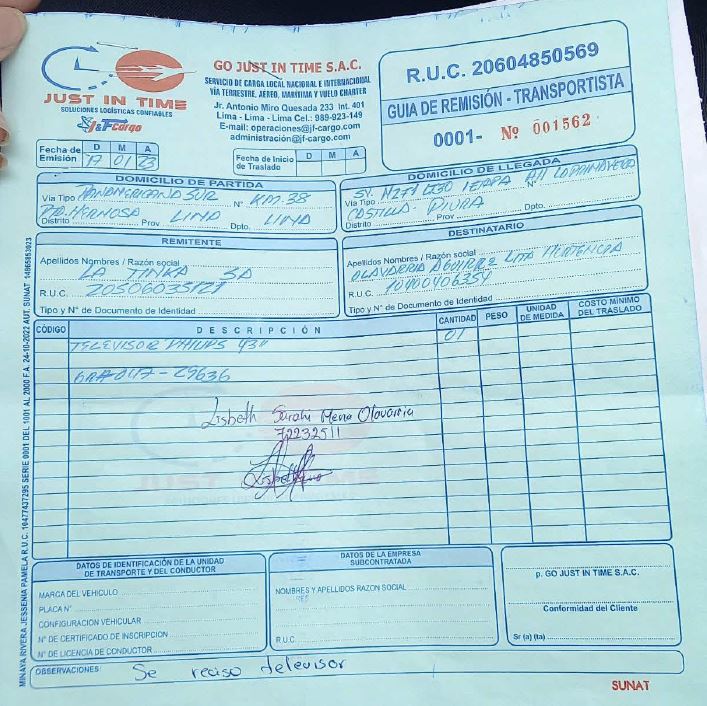 JUST IN TIME
SOLUCIONES LOGÍSTICAS CONFIABLES
J&F Cargo
GO JUST IN TIME S.A.C.
SERVICIO DE CARGA LOCAL NACIONAL E INTERNACIONAL
VÍA TERRESTRE, AÉREO, MARÍTIMA Y VUELO CHARTER
Jr. Antonio Miro Quesada 233 Int. 401
Lima - Lima - Lima Cel.: 989-923-149
E-mail: operaciones@jf-cargo.com
administración@jf-cargo.com
R.U.C. 20604850569
GUIA DE REMISIÓN - TRANSPORTISTA
0001- Nº 001562
Fecha de Emisión D M A
17 01 23
Fecha de Inicio de Traslado D M A
DOMICILIO DE PARTIDA
Vía Tipo PANAMERICANA SUR N° KM. 38
PTA. HERMOSA LIMA LIMA
Distrito Prov Dpto.
DOMICILIO DE LLEGADA
Vía Tipo N°
CASTILLA - PIURA
Distrito Prov Dpto.
REMITENTE
Apellidos Nombres / Razón social
LA TINKA SA
R.U.C. 20506035121
Tipo y N° de Documento de Identidad
DESTINATARIO
Apellidos Nombres / Razón social
OLAVARRIA AGUIRRE LITA
R.U.C. 10400406354
Tipo y N° de Documento de Identidad
CÓDIGO DESCRIPCIÓN CANTIDAD PESO UNIDAD DE MEDIDA COSTO MÍNIMO DEL TRASLADO
TELEVISOR PHILIPS 43" 01
29636
Lisbeth Sarahi Mena Olavarria
72232511
DATOS DE IDENTIFICACIÓN DE LA UNIDAD
DE TRANSPORTE Y DEL CONDUCTOR
MARCA DEL VEHICULO
PLACA N°
CONFIGURACIÓN VEHICULAR
N° DE CERTIFICADO DE INSCRIPCION
N° DE LICENCIA DE CONDUCTOR
DATOS DE LA EMPRESA
SUBCONTRATADA
NOMBRES Y APELLIDOS RAZON SOCIAL
R.U.C.
p. GO JUST IN TIME S.A.C.
Conformidad del Cliente
Sr (a) (ta)
OBSERVACIONES Se reciso televisor
SUNAT
MINAYA RIVERA JESSENIA PAMELA R.U.C. 10477437295 SERIE 0001 DEL 1001 AL 2000 F.A. 24-10-2022 AUT. SUNAT 14865853023